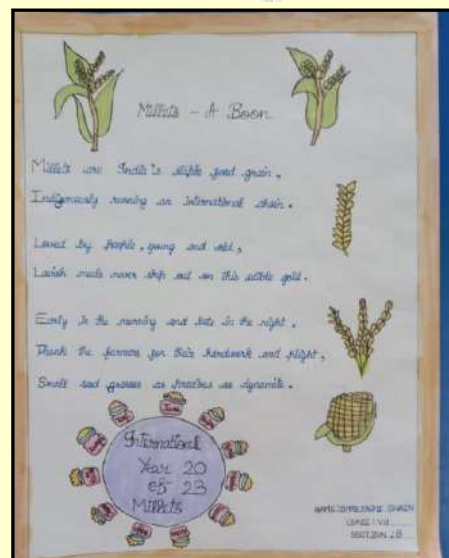 Millets - A Boon
Millets are India's staple food grain,
Indigenously running an international chain.
Loved by people, young and old,
Lavish meals never skip out on this edible gold.
Early in the morning and late in the night,
Thank the farmers for their handwork and plight,
Small seed grasses as precious as dynamite.
International
Year 20
of 23
Millets
CLASS : VII
SECTION : B